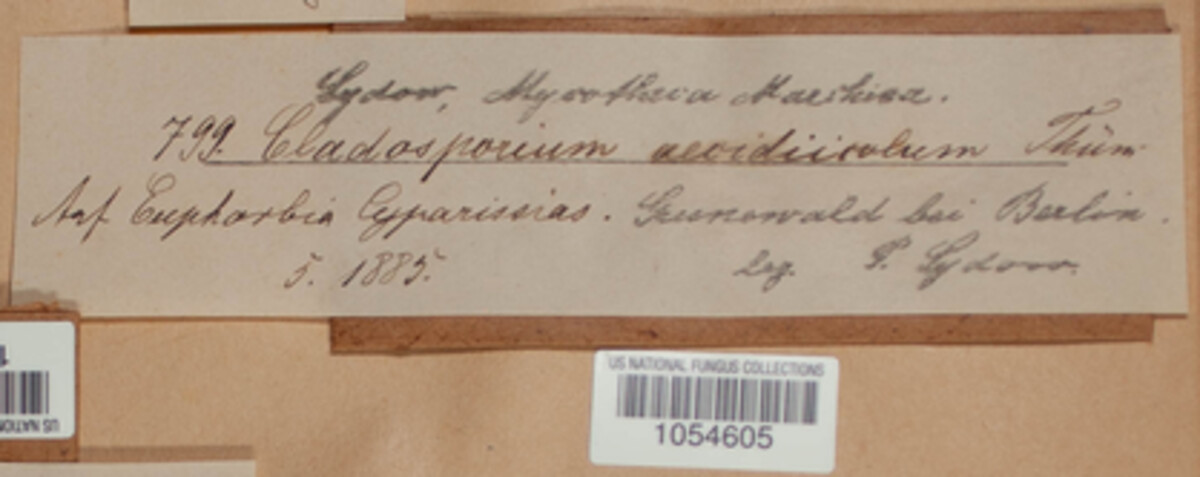 Sydow, Mycotheca Marchica.
799. Cladosporium aecidiicolum Thüm
Auf Euphorbia Cyparissias. Grunewald bei Berlin.
5. 1885. leg. P. Sydow.
US NATIONAL FUNGUS COLLECTIONS
1054605
US NATION